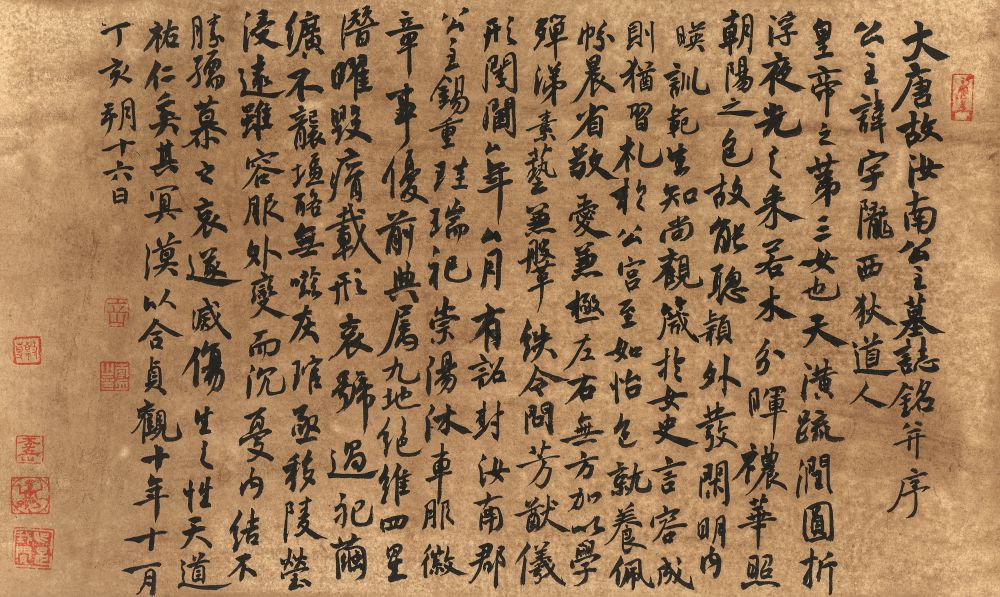 大唐故汝南公主墓誌銘并序
公主諱字隴西狄道人
皇帝之第三女也天潢疏潤圓折
浮夜光之采若木分暉穠華照
朝陽之色故能聰穎外發閑明內
暎訓範生知尚觀箴於女史言容成
則猶習札於公宮至如怡色就養佩
帉晨省敬愛兼極左右無方加以學
殫綈素藝兼鞶紩令問芳猷儀
形閨閫厶年厶月有詔封汝南郡
公主錫重珪瑞祀崇湯沐車服徽
章事優前典屬九地絕維四星
潛曜毀瘠載形哀號過祀繭
纊不襲塩酪無嗞灰琯亟移陵塋
浸遠雖容服外變而沉憂內結不
勝孺慕之哀遂滅傷生之性天道
祐仁奚其冥漠以今貞觀十年十一月
丁亥朔十六日